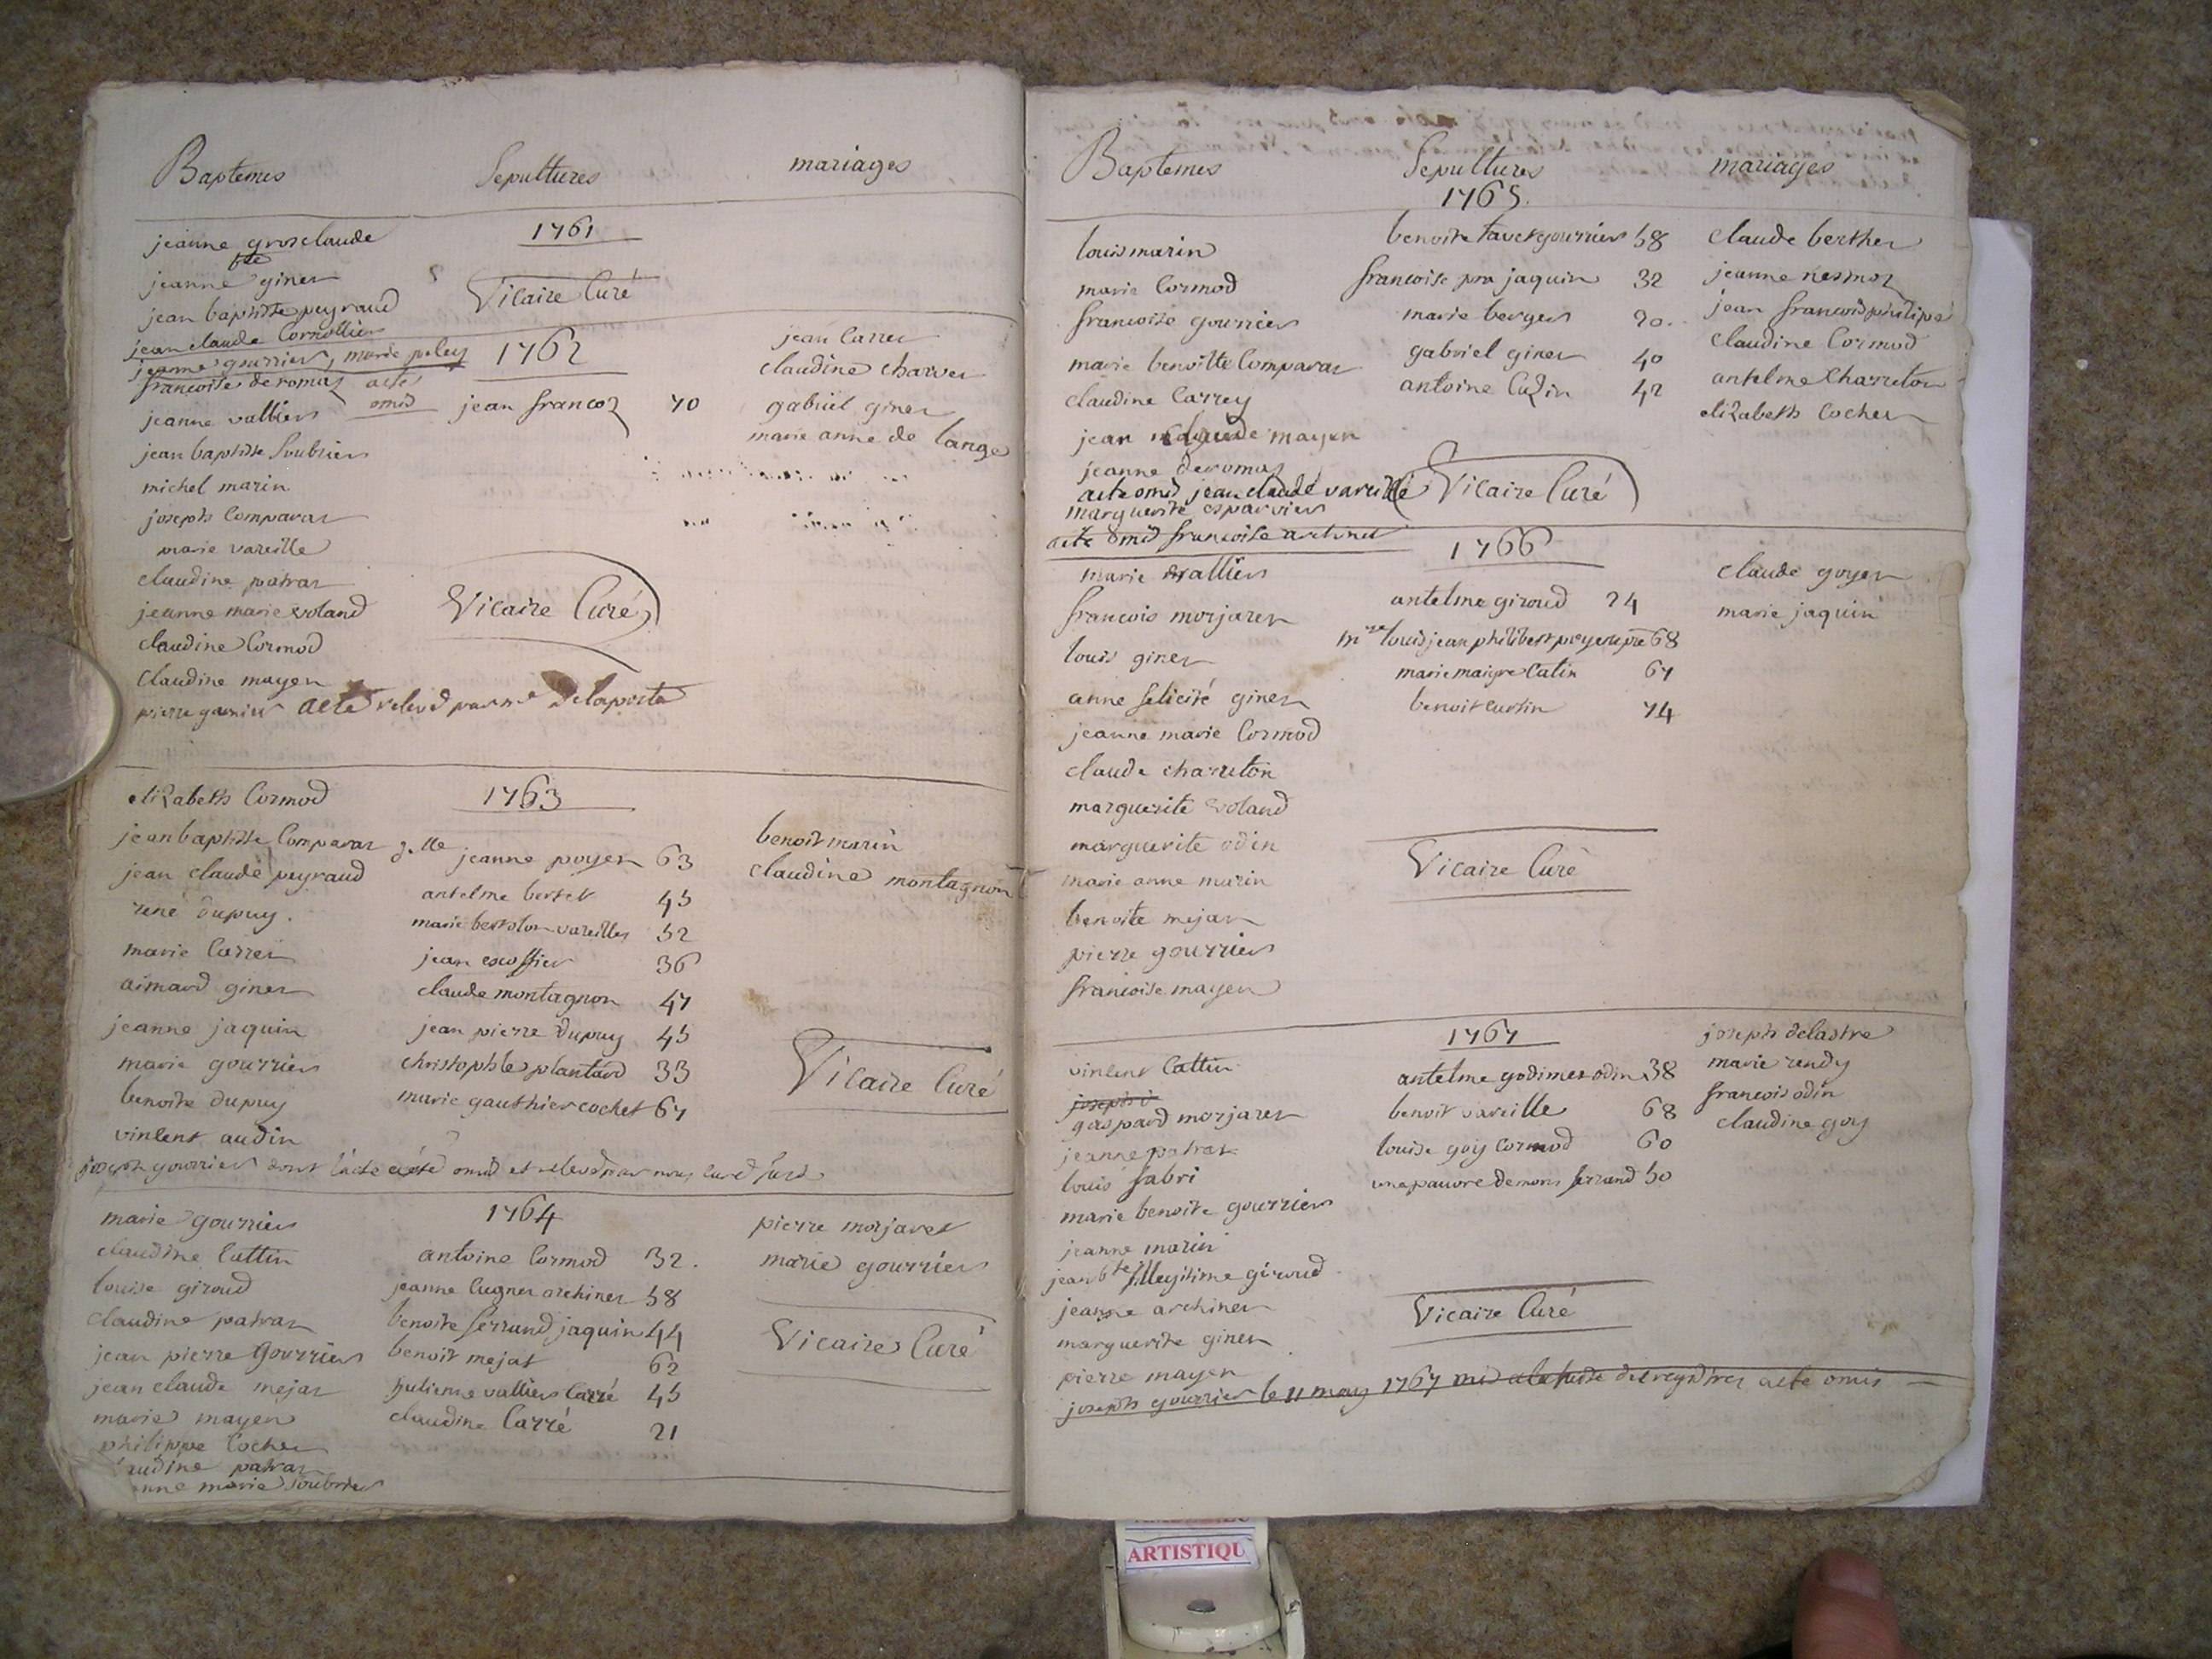 Baptemes
jeanne grosclaude
bte
jeanne giner
jean baptiste peyraud
jean claude Cornillier
jeanne gourrier, marie
francoise deromas actes
jeanne vallier omis
jean baptiste Soubrier
michel marin
joseph Comparat
marie vareille
claudine patrat
jeanne marie roland
claudine Cormod
claudine mayen
pierre garnier acte relevé par me Delaporte
elizabeth Cormod
jean baptiste Comparat
jean claude peyraud
rené dupuy.
marie Carrer
aimard giner
jeanne jaquin
marie gourrier
benoite dupuy
vincent audin
joseph gourrier dont l'acte a été omis et relevé par nous curé
marie gourrier
claudine Cattin
louise giroud
claudine patrat
jean pierre gourrier
jean claude mejat
marie mayen
philippe Cochet
audine patrat
anne marie Soubrier
Sepultures
1761
Vicaire Curé
1762
jean francoz 70
Vicaire Curé
1763
d.lle jeanne poyer 63
antelme bertet 45
marie bertolon vareilles 52
jean escoffier 36
claude montagnon 47
jean pierre dupuy 45
christophle plantard 33
marie gauthier cochet 67
1764
antoine Cormod 32.
jeanne Cugner archiner 58
benoite ferrand jaquin 44
benoit mejat 62
julienne vallier Carré 45
claudine Carré 21
mariages
jean Carrer
claudine charver
gabriel giner
marie anne de lange
benoit marin
claudine montagnon
Vicaire Curé
pierre morjaret
marie gourrier
Vicaire Curé
Baptemes
louis marin
marie Cormod
francoise gourrier
marie benoitte Comparat
claudine Carrey
jean claude mayen
jeanne deromas
acte omis jean claude vareille
marguerite esparvier
acte omis francoise archinet
marie vallier
francois morjaret
louis giner
anne felicité giner
jeanne marie Cormod
claude charreton
marguerite roland
marguerite odin
marie anne marin
benoite mejat
pierre gourrier
francoise mayen
vincent Cattin
joseph
gaspard morjaret
jeanne patrat
louis fabri
marie benoite gourrier
jeanne marin
jean bte illegitime giroud
jeanne archiner
marguerite giner
pierre mayen
joseph gourrier le 11 may 1767 mis a la suite des registres acte omis
Sepultures
1765.
benoite favet gourrier 58
francoise pra jaquin 32
marie berger 20.
gabriel giner 40
antoine Cuzin 42
Vicaire Curé
1766
antelme giroud 24
mre louis jean philibert 68
marie maigre Catin 67
benoit curtin 74
Vicaire Curé
1767
antelme godimer odin 38
benoit vareille 68
louise goy Cormod 60
une pauvre de mons ferrand 50
Vicaire Curé
mariages
claude berther
jeanne nesmoz
jean francois philipé
claudine Cormod
antelme Charreton
elizabeth Cocher
claude goyer
marie jaquin
joseph delastre
marie rendy
francois odin
claudine goy
ARTISTIQU